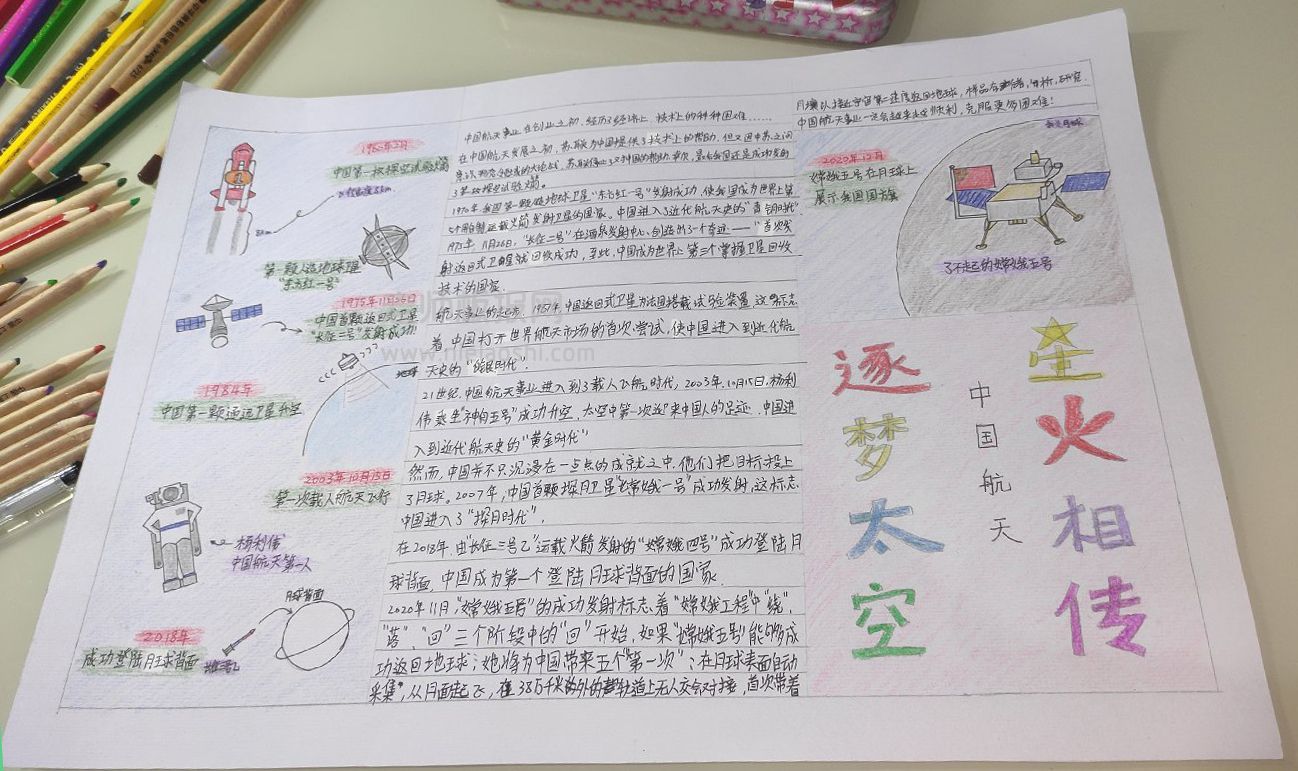 1960年2月
中国第一枚探空试验火箭
8km
第一颗人造地球卫星
"东方红一号"
1975年11月26日
中国首颗返回式卫星
"长征二号"发射成功!
地球
1984年
中国第一颗通迅卫星升空
2003年10月15日
第一次载人航天飞行
杨利伟
中国航天第一人
月球背面
2018年
成功登陆月球背面
中国航天事业在创业之初,经历了经济上、技术上的种种困难……
在中国航天发展之初,苏联为中国提供了技术上的帮助,但又因中苏之间
意识形态领域的大论战,苏联停止了对中国的帮助。最后我国还是成功发射
了第一枚探空试验火箭。
1970年我国第一颗人造地球卫星"东方红一号"发射成功,使我国成为世界上第
5个用自制运载火箭发射卫星的国家。中国进入了近代航天史的"青铜时代".
1975年,11月26日,"长征二号"在酒泉发射中心,创造出了一个奇迹——"首次发
射返回式卫星就回收成功,至此,中国成为世界上第三个掌握卫星回收
技术的国家.
航天事业的走出去,1987年,中国返回式卫星为法国搭载试验装置,这标志
着中国打开世界航天市场的首次尝试,使中国进入到近代航
天史的"白银时代".
21世纪,中国航天事业进入到了载人飞船时代,2003年,10月15日,杨利
伟乘坐"神舟五号"成功升空,太空中第一次迎来中国人的足迹.中国进
入到近代航天史的"黄金时代"
然而,中国并不只沉浸在一点点的成就之中,他们把目标投上
了月球。2007年,中国首颗探月卫星"嫦娥一号"成功发射,这标志
中国进入了"探月时代".
在2018年.由"长征三号乙"运载火箭发射的"嫦娥四号"成功登陆月
球背面,中国成为第一个登陆月球背面的国家.
2020年11月,"嫦娥五号"的成功发射标志着"嫦娥工程"中"绕",
"落","回"三个阶段中的"回"开始,如果"嫦娥五号"能够成
功返回地球;她将为中国带来五个"第一次":在月球表面自动
采集,从月面起飞,在38万千米外的轨道上无人交会对接,首次带着
月壤以接近宇宙第一速度返回地球,样品存储,分析,研究.
中国航天事业一定会越来越顺利,克服更多困难!
2020年12月
嫦娥五号在月球上
展示我国国旗
了不起的嫦娥五号
逐梦太空
中国航天
星火相传